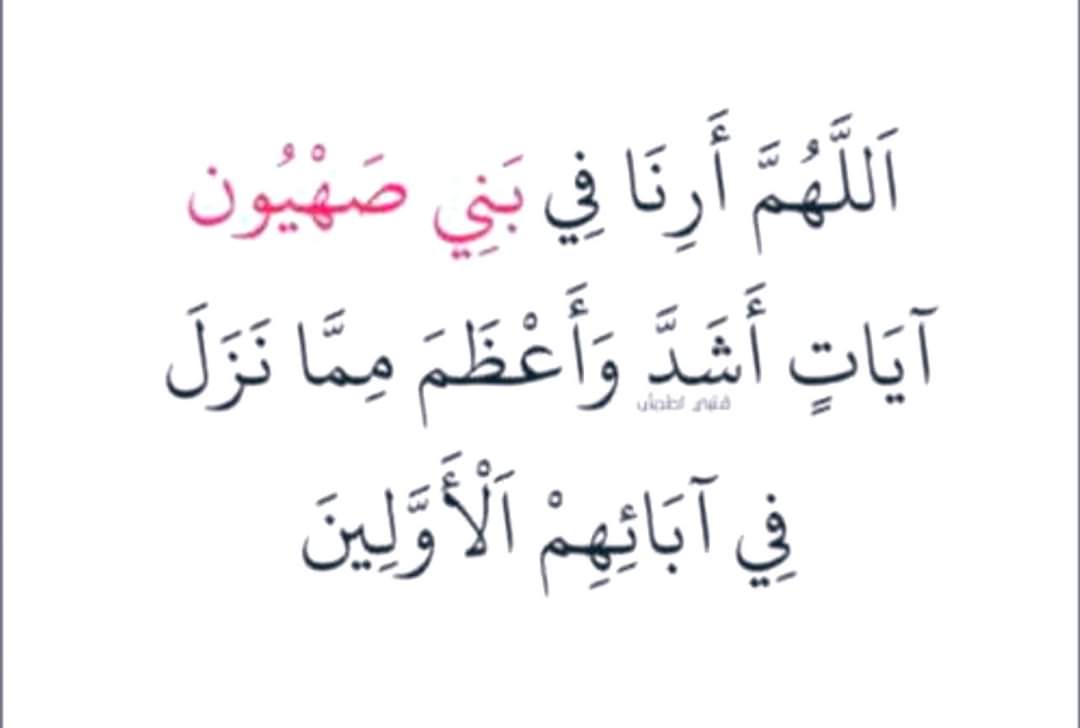 اَللَّهُمَّ أَرِنَا فِي بَنِي صَهْيُون
آيَاتٍ أَشَدَّ وَأَعْظَمَ مِمَّا نَزَلَ
فِي آبَائِهِمْ اَلْأَوَّلِينَ